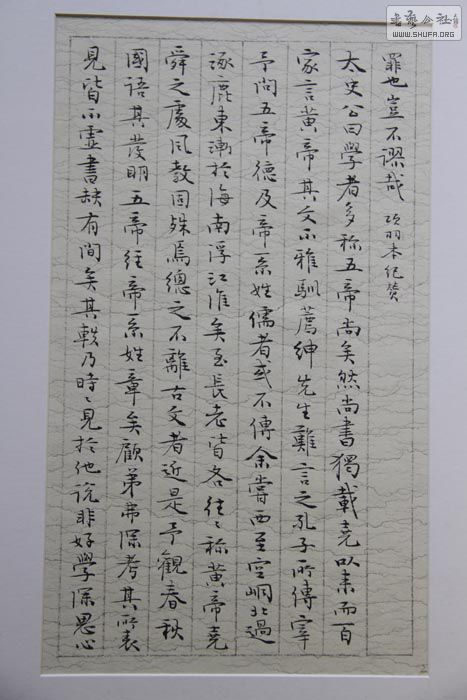 書藝公社
WWW.SHUFA.ORG
罪也豈不謬哉 項羽本紀贊
太史公曰學者多稱五帝尚矣然尚書獨載堯以來而百
家言黃帝其文不雅馴薦紳先生難言之孔子所傳宰
予問五帝德及帝系姓儒者或不傳余嘗西至空峒北過
涿鹿東漸於海南浮江淮矣至長老皆各往〻稱黃帝堯
舜之處風教固殊焉總之不離古文者近是予觀春秋
國語其發明五帝德帝系姓章矣顧弟弗深考其所表
見皆不虛書缺有間矣其軼乃時〻見於他說非好學深思心